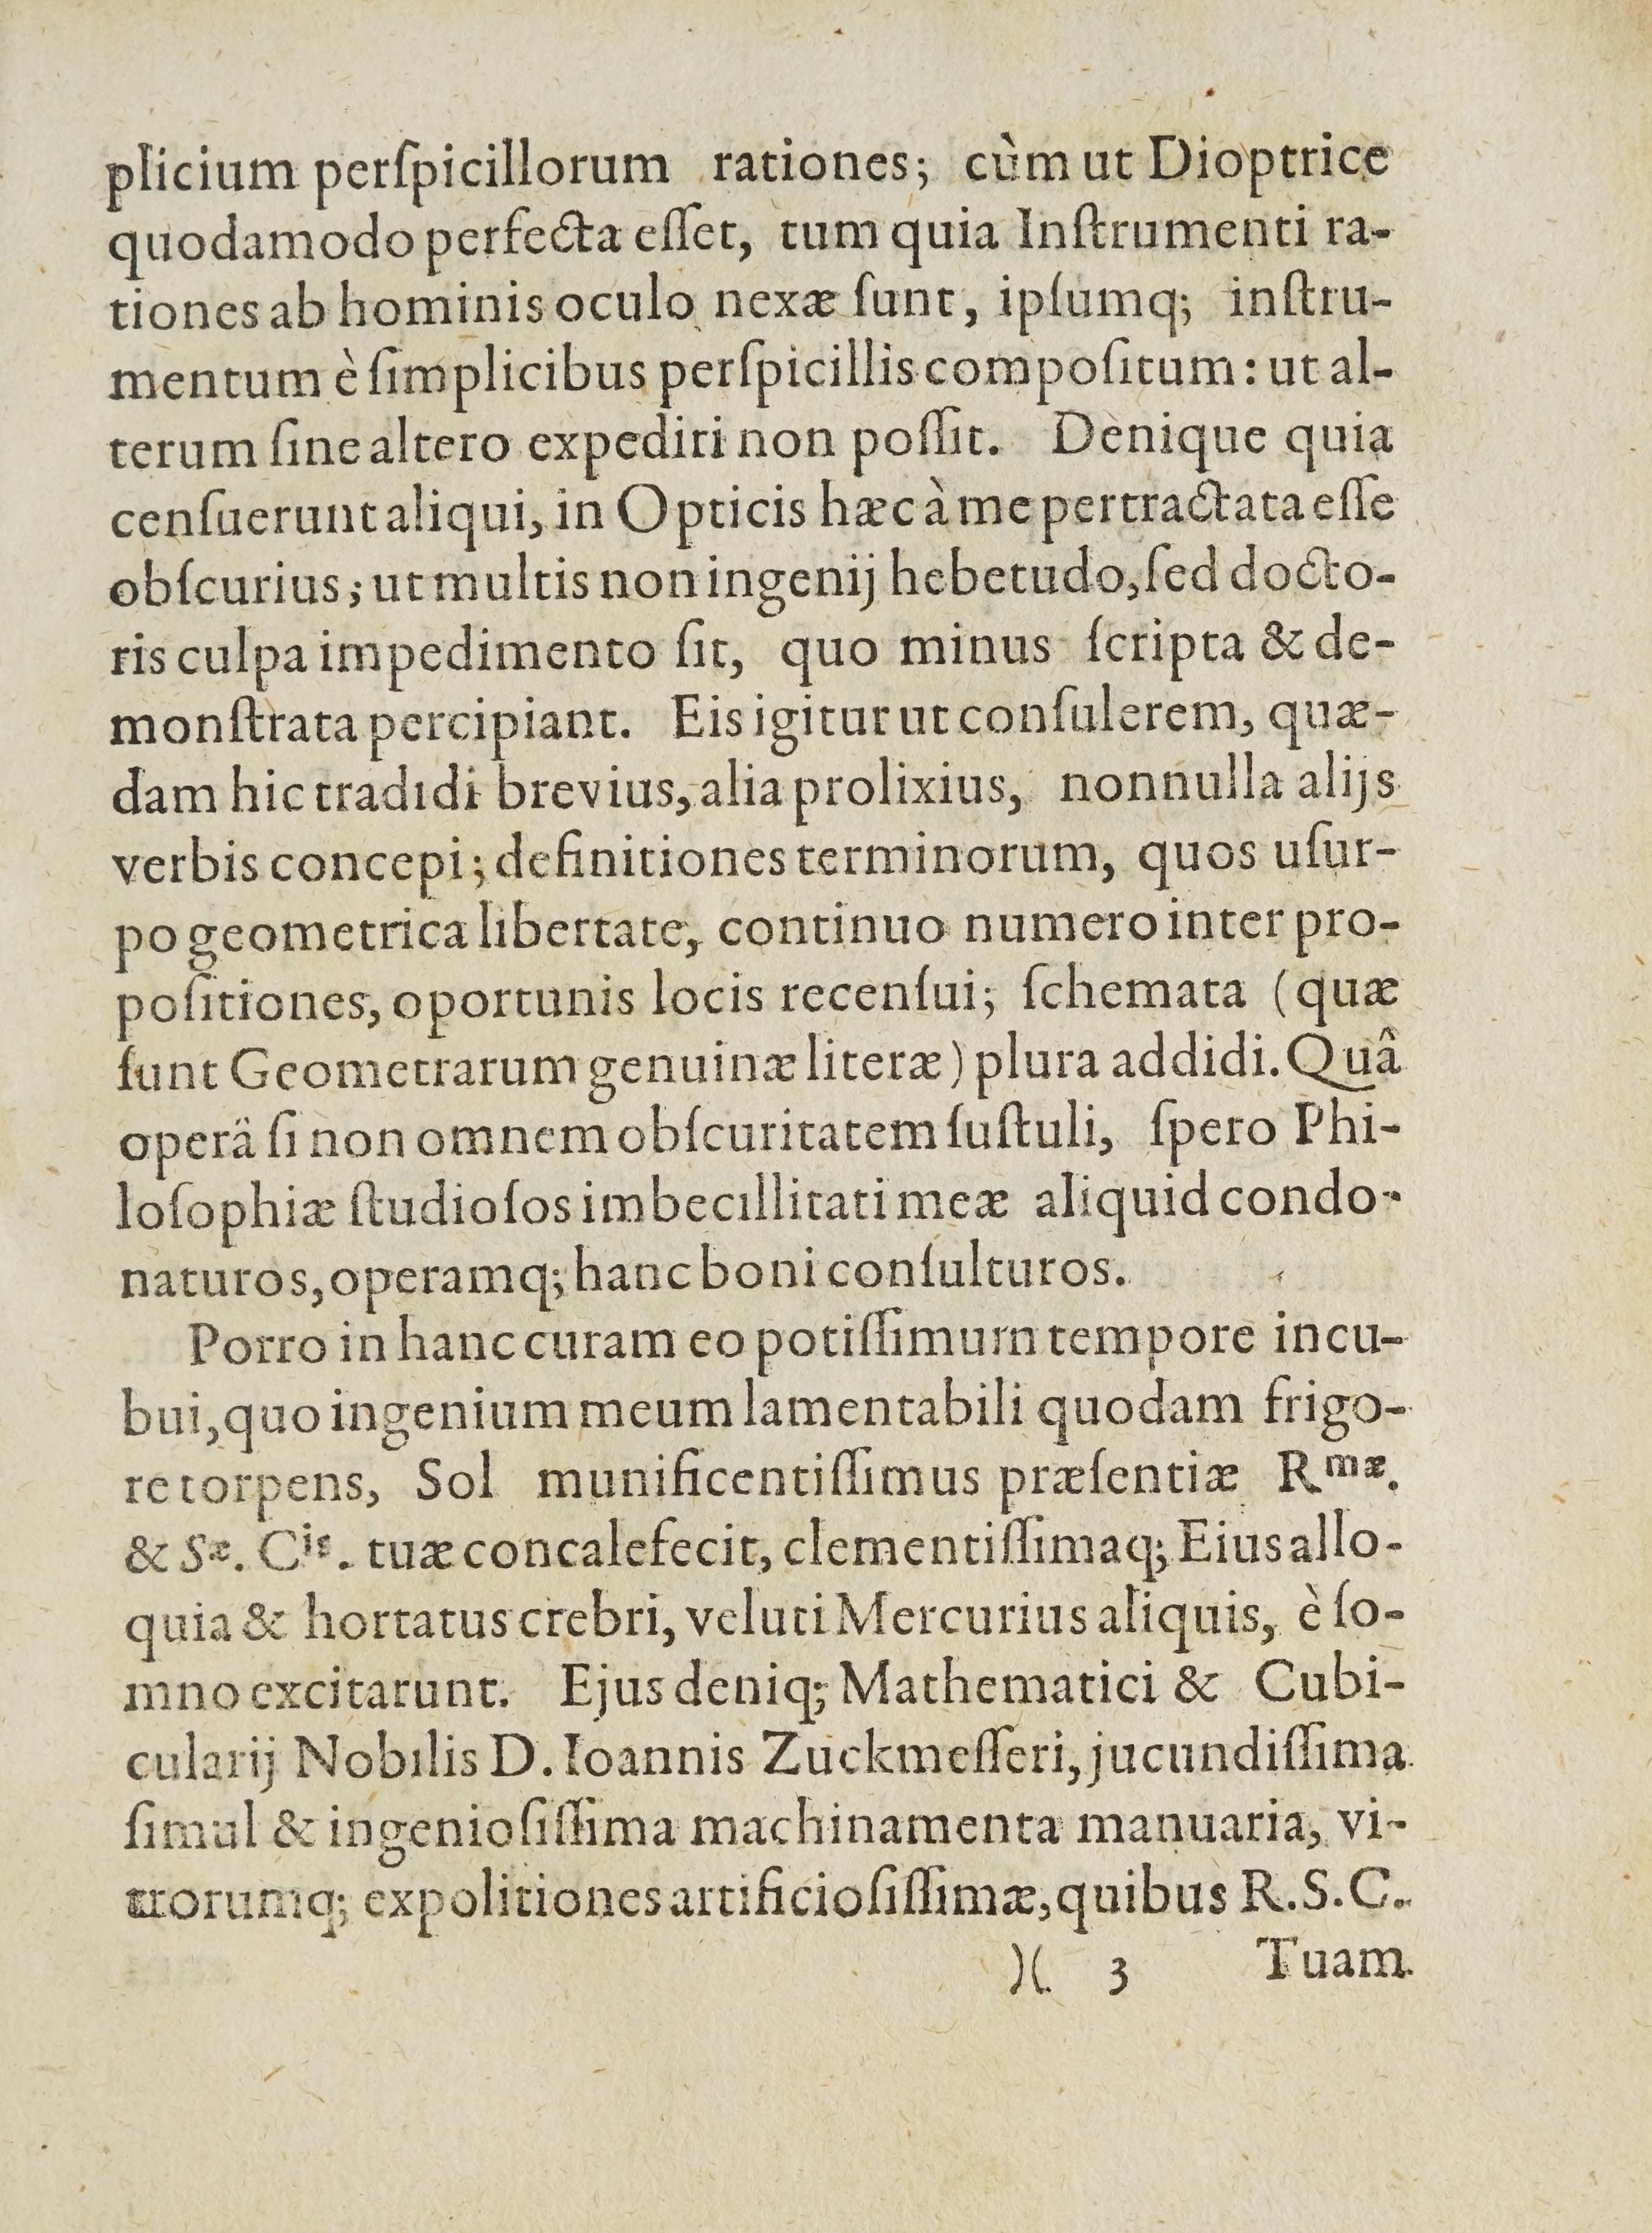 plicium perſpicillorum rationes; cùm ut Dioptrice
quodamodo perfecta eſſet, tum quia Inſtrumenti ra-
tiones ab hominis oculo nexæ ſunt, ipſumq; inſtru-
mentum è ſimplicibus perſpicillis compoſitum: ut al-
terum ſine altero expediri non poſſit. Denique quia
cenſuerunt aliqui, in Opticis hæc à me pertractata eſſe
obſcurius; ut multis non ingenij hebetudo, ſed docto-
ris culpa impedimento ſit, quo minus ſcripta & de-
monſtrata percipiant. Eis igitur ut conſulerem, quæ-
dam hic tradidi brevius, alia prolixius, nonnulla alijs
verbis concepi; definitiones terminorum, quos uſur-
po geometrica libertate, continuo numero inter pro-
poſitiones, oportunis locis recenſui; ſchemata (quæ
ſunt Geometrarum genuinæ literæ) plura addidi. Quâ
operä ſi non omnem obſcuritatem ſuſtuli, ſpero Phi-
loſophiæ ſtudioſos imbecillitati meæ aliquid condo-
naturos, operamq; hanc boni conſulturos.
Porro in hanc curam eo potiſſimum tempore incu-
bui, quo ingenium meum lamentabili quodam frigo-
re torpens, Sol munificentiſſimus præſentiæ Rᵐæ.
& Sæ. Cⁱˢ. tuæ concalefecit, clementiſſimaq; Eius allo-
quia & hortatus crebri, veluti Mercurius aliquis, è ſo-
mno excitarunt. Ejus deniq; Mathematici & Cubi-
cularij Nobilis D. Ioannis Zuckmeſſeri, jucundiſſima
ſimul & ingenioſiſſima machinamenta manuaria, vi-
trorumq; expolitiones artificioſiſſimæ, quibus R. S. C.
)( 3 Tuam